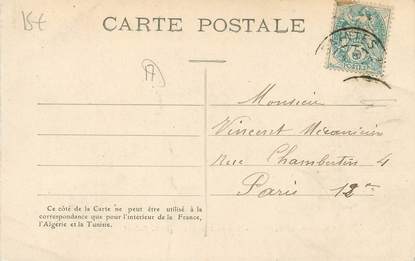 15€
CARTE POSTALE
A
Monsieur
Vincent Mécanicien
Rue Chambertin 4
Paris 12e
Ce côté de la Carte ne peut être utilisé à la
correspondance que pour l'intérieur de la France,
l'Algérie et la Tunisie.